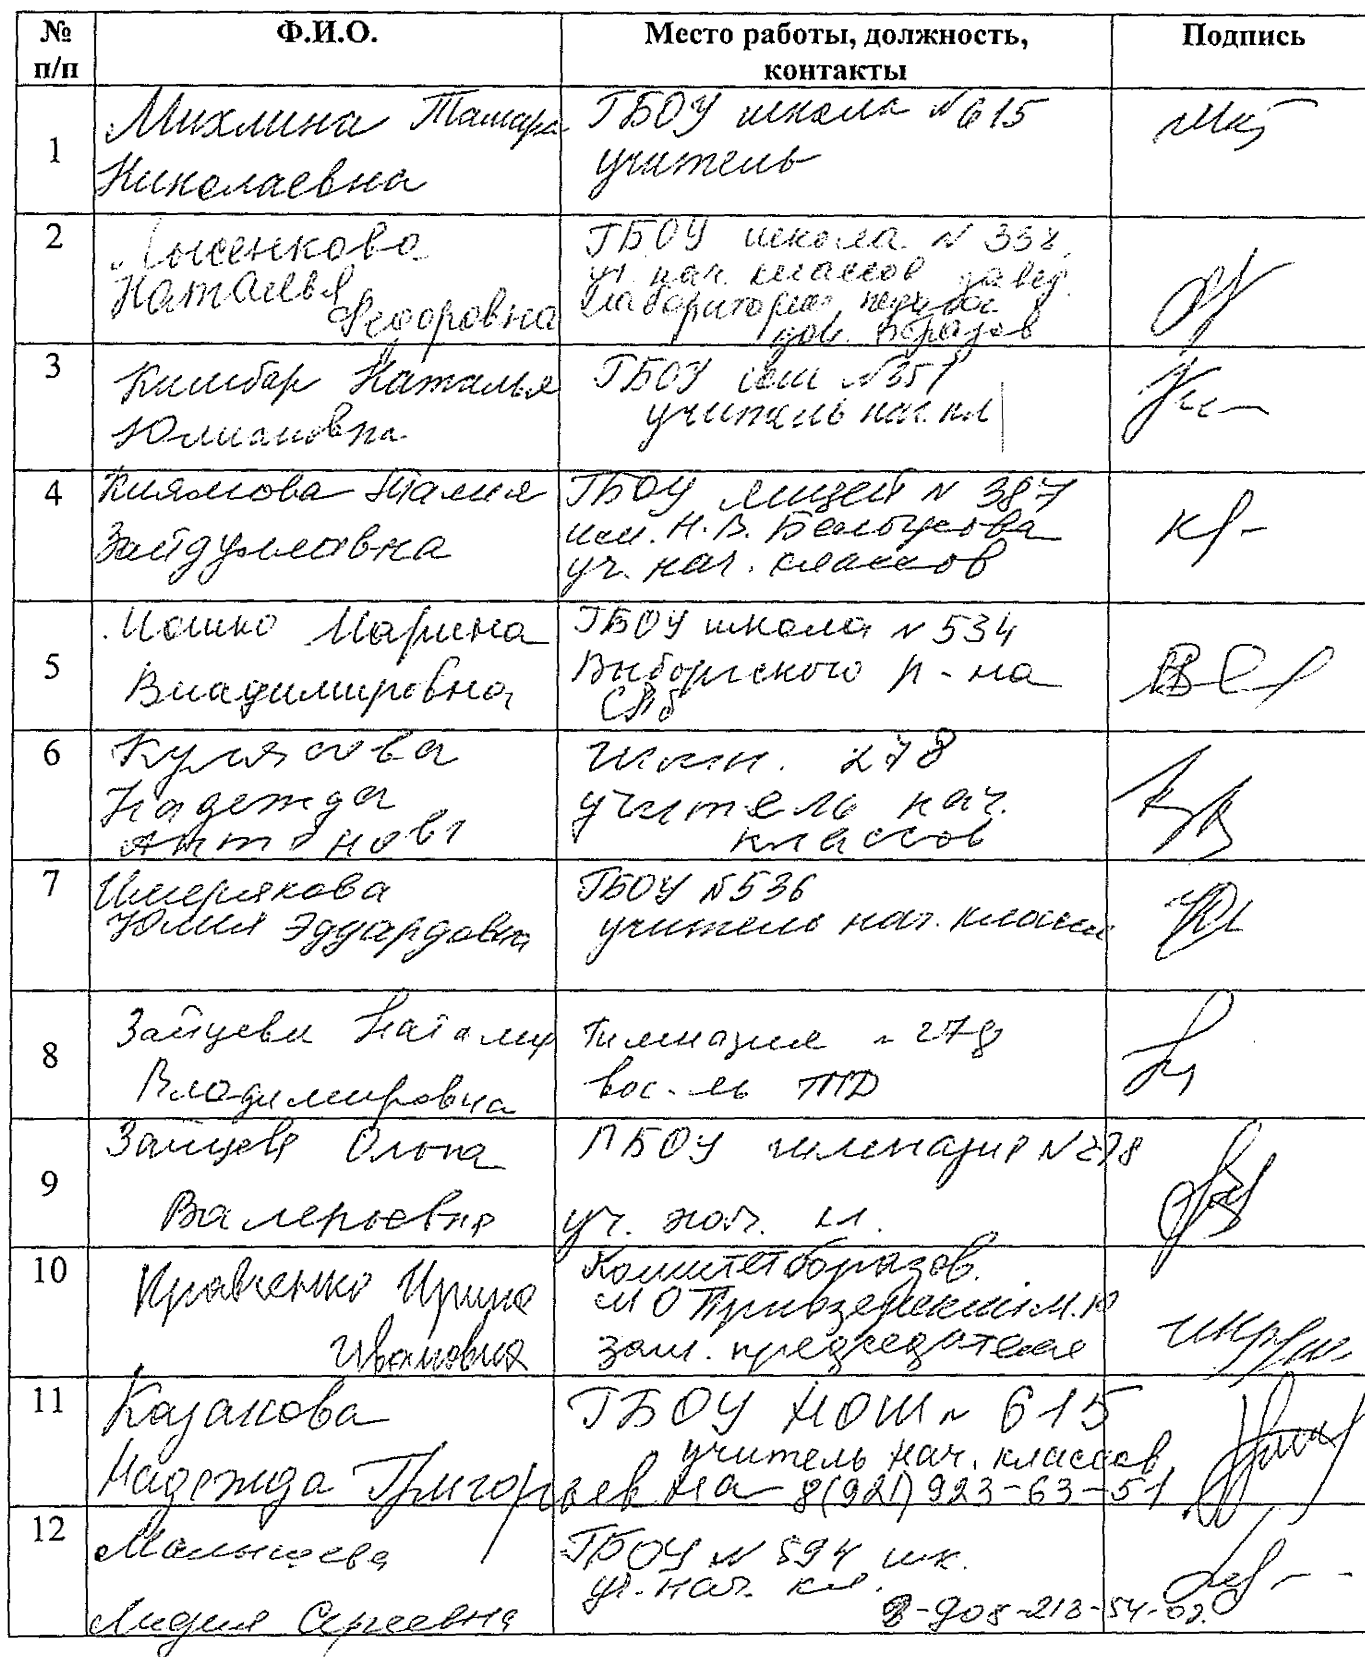 № Ф.И.О. Место работы, должность, Подпись
п/п контакты
1
Михлина Тамара
Николаевна
ГБОУ школа №615
учитель
2
Лысенкова
Наталья
Федоровна
ГБОУ школа № 338,
уч. нач. классов завед.
лабораторией
доп. образов
3
Кимбар Наталья
Юлиановна
ГБОУ сош №351
учитель нач. кл
4
Киямова Талия
Зайдулловна
ГБОУ лицей № 387
им. Н.В. Белоусова
уч. нач. классов
5
Марина
Владимировна
ГБОУ школа № 534
Выборгского р-на
СПб
6
Кулясова
Надежда
Антонов
гимн. 278
учитель нач.
классов
7
Имерякова
Юлия Эдуардовна
ГБОУ №536
учитель нач. класса
8
Зайцева Наталия
Владимировна
Гимназия № 278
вос-ль ГПД
9
Зайцева Ольга
Валерьевна
ГБОУ гимназия №278
уч. нач. кл.
10
Кравченко Ирина
Ивановна
Комитет образов.
МО Приозерский м.р
зам. председателя
11
Казакова
Надежда Григорьевна
ГБОУ НОШ № 615
учитель нач. классов
8(921)923-63-51
12
Малышева
Лидия Сергеевна
ГБОУ № 594 шк.
уч. нач. кл.
8-908-213-54-02